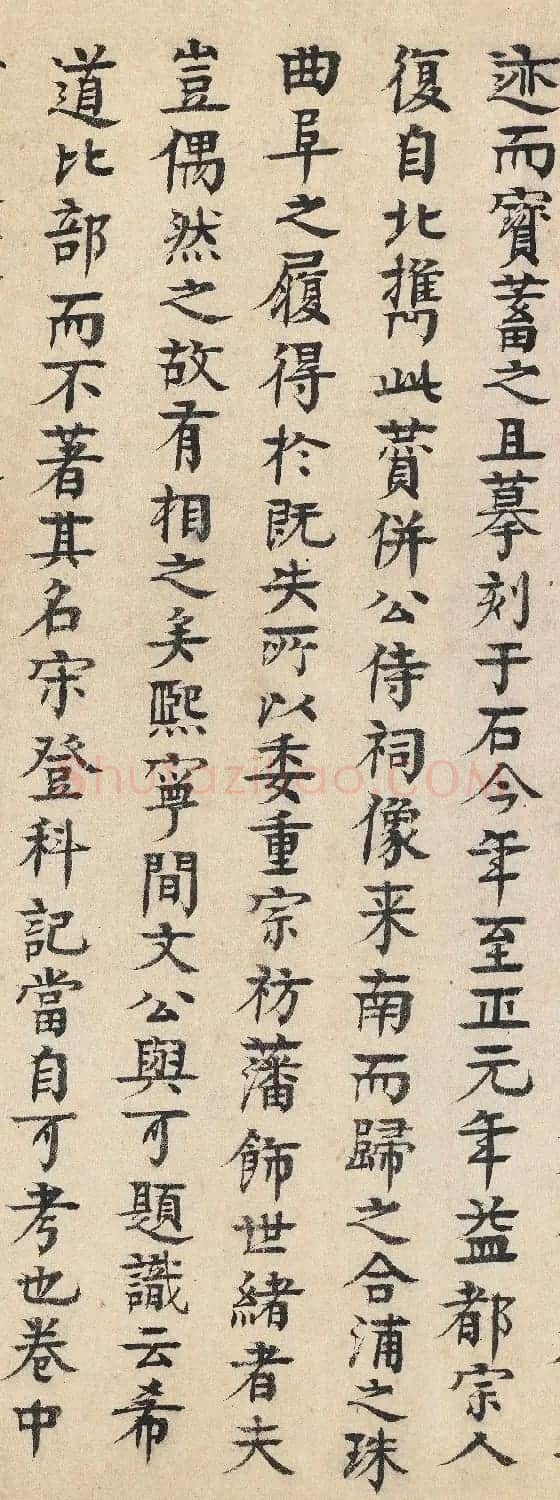 迹而寶蓄之且摹刻于石今年至正元年益都宗人
復自北攜此賛併公侍祠像来南而歸之合浦之珠
曲阜之履得於既失所以委重宗祊藩飾世緒者夫
豈偶然之故有相之矣熙寧間文公與可題識云希
道比部而不著其名宋登科記當自可考也卷中